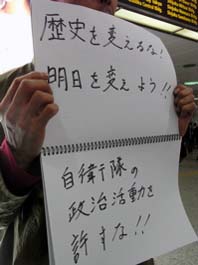 歴史を変えるな!
明日を変えよう!!
自衛隊の
政治活動を
許すな!!